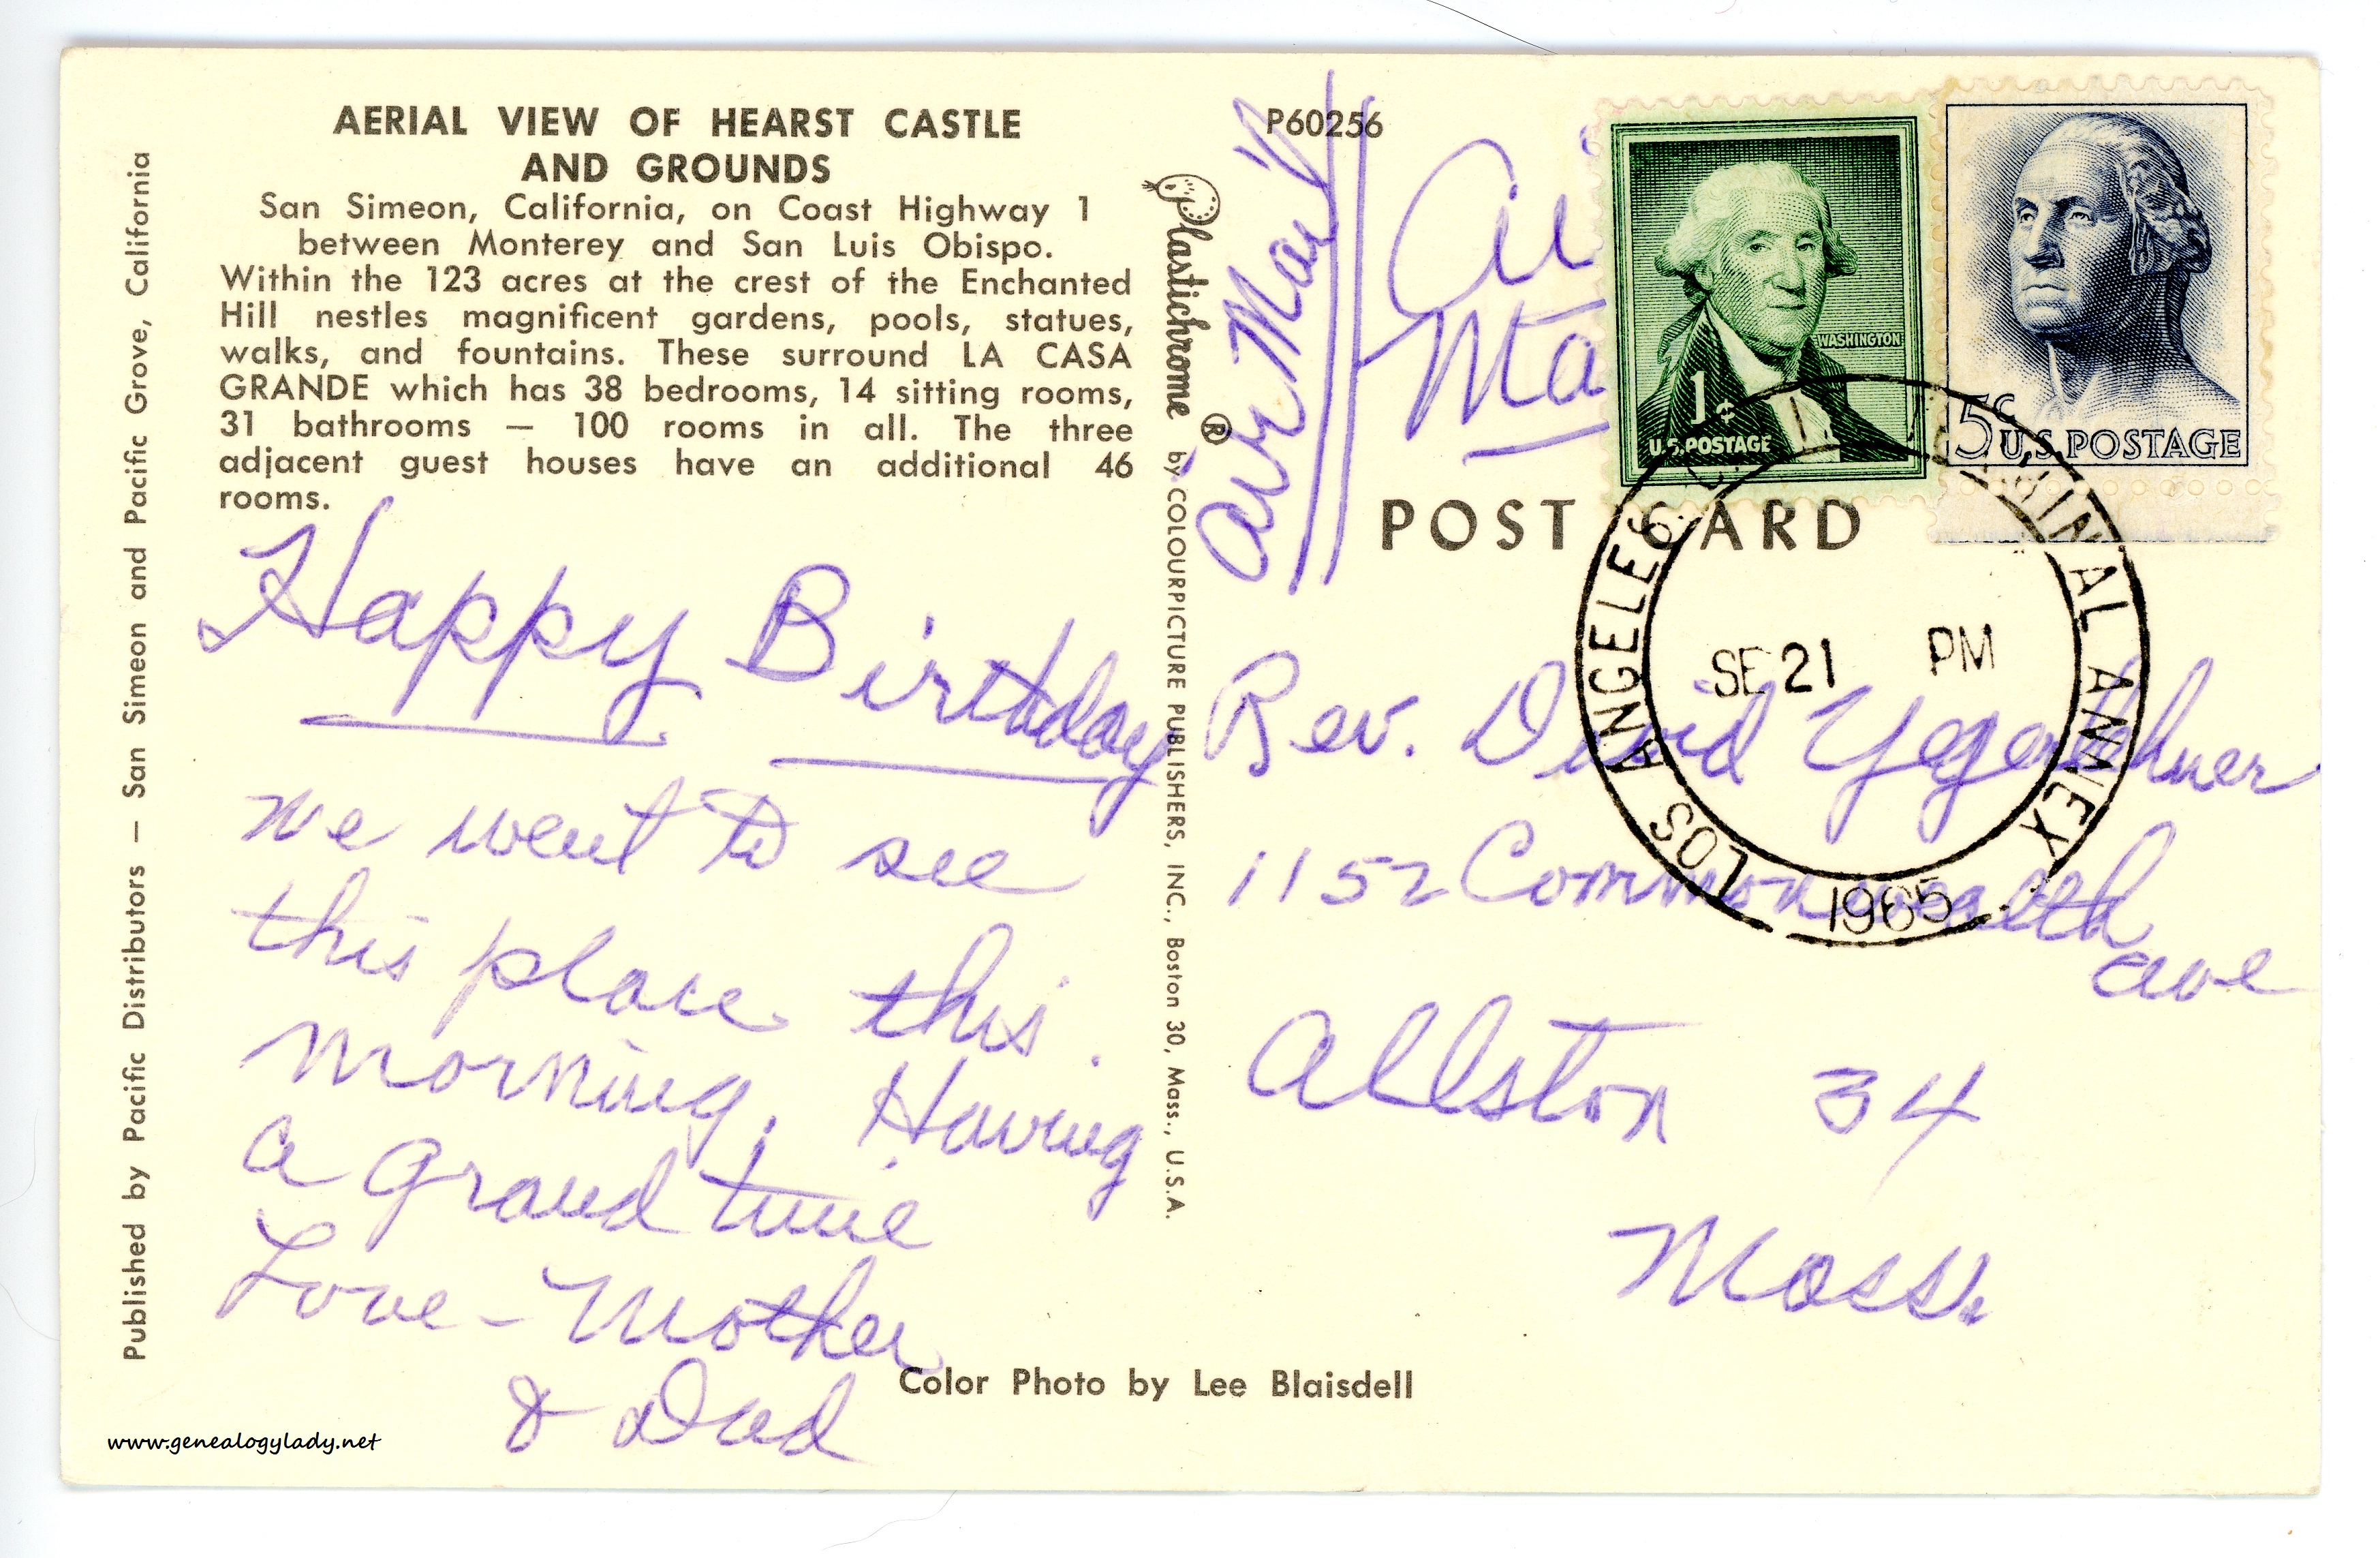 AERIAL VIEW OF HEARST CASTLE
AND GROUNDS
San Simeon, California, on Coast Highway 1
between Monterey and San Luis Obispo.
Within the 123 acres at the crest of the Enchanted
Hill nestles magnificent gardens, pools, statues,
walks, and fountains. These surround LA CASA
GRANDE which has 38 bedrooms, 14 sitting rooms,
31 bathrooms — 100 rooms in all. The three
adjacent guest houses have an additional 46
rooms.
Published by Pacific Distributors — San Simeon and Pacific Grove, California
Happy Birthday
we went to see
this place this
morning. Having
a grand time
Love - Mother
& Dad
www.genealogylady.net
Color Photo by Lee Blaisdell
Plastichrome ® by COLOURPICTURE PUBLISHERS, INC., Boston 30, Mass., U.S.A.
P60256
Air Mail
Ai
Ma
WASHINGTON
1¢
U.S. POSTAGE
5¢ U.S. POSTAGE
POST CARD
LOS ANGELES TERMINAL ANNEX
SE 21 PM
1965
Rev. David Yegerlehner
1152 Commonwealth
ave
Allston 34
Mass.